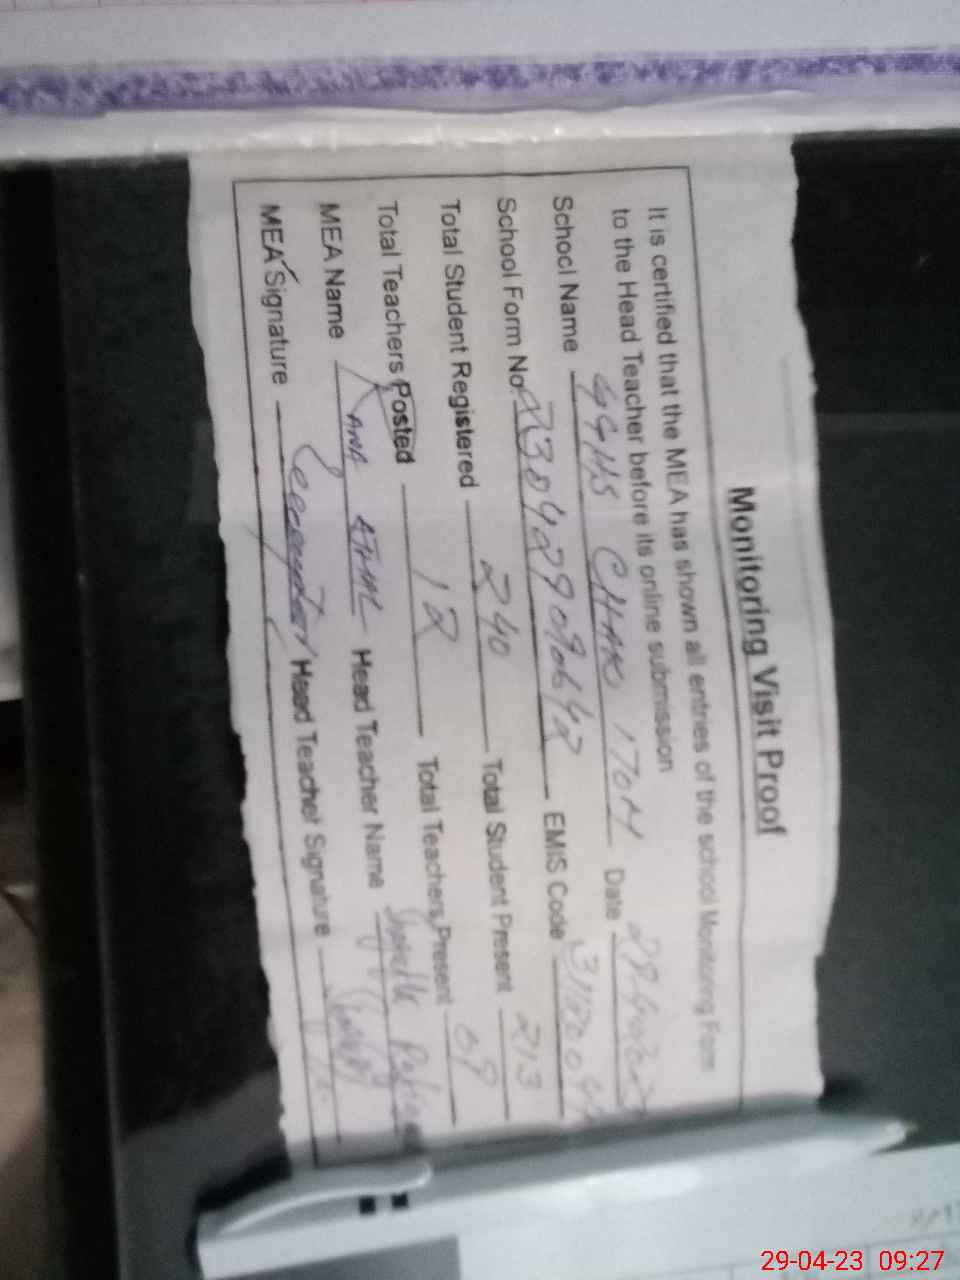 Monitoring Visit Proof
It is certified that the MEA has shown all entries of the school Monitoring Form
to the Head Teacher before its online submission
School Name GGHS CHAK 170M Date
School Form No. EMIS Code
Total Student Registered 240 Total Student Present 213
Total Teachers Posted 12 Total Teachers Present 09
MEA Name RANA Head Teacher Name
MEA Signature Head Teacher Signature
29-04-23 09:27